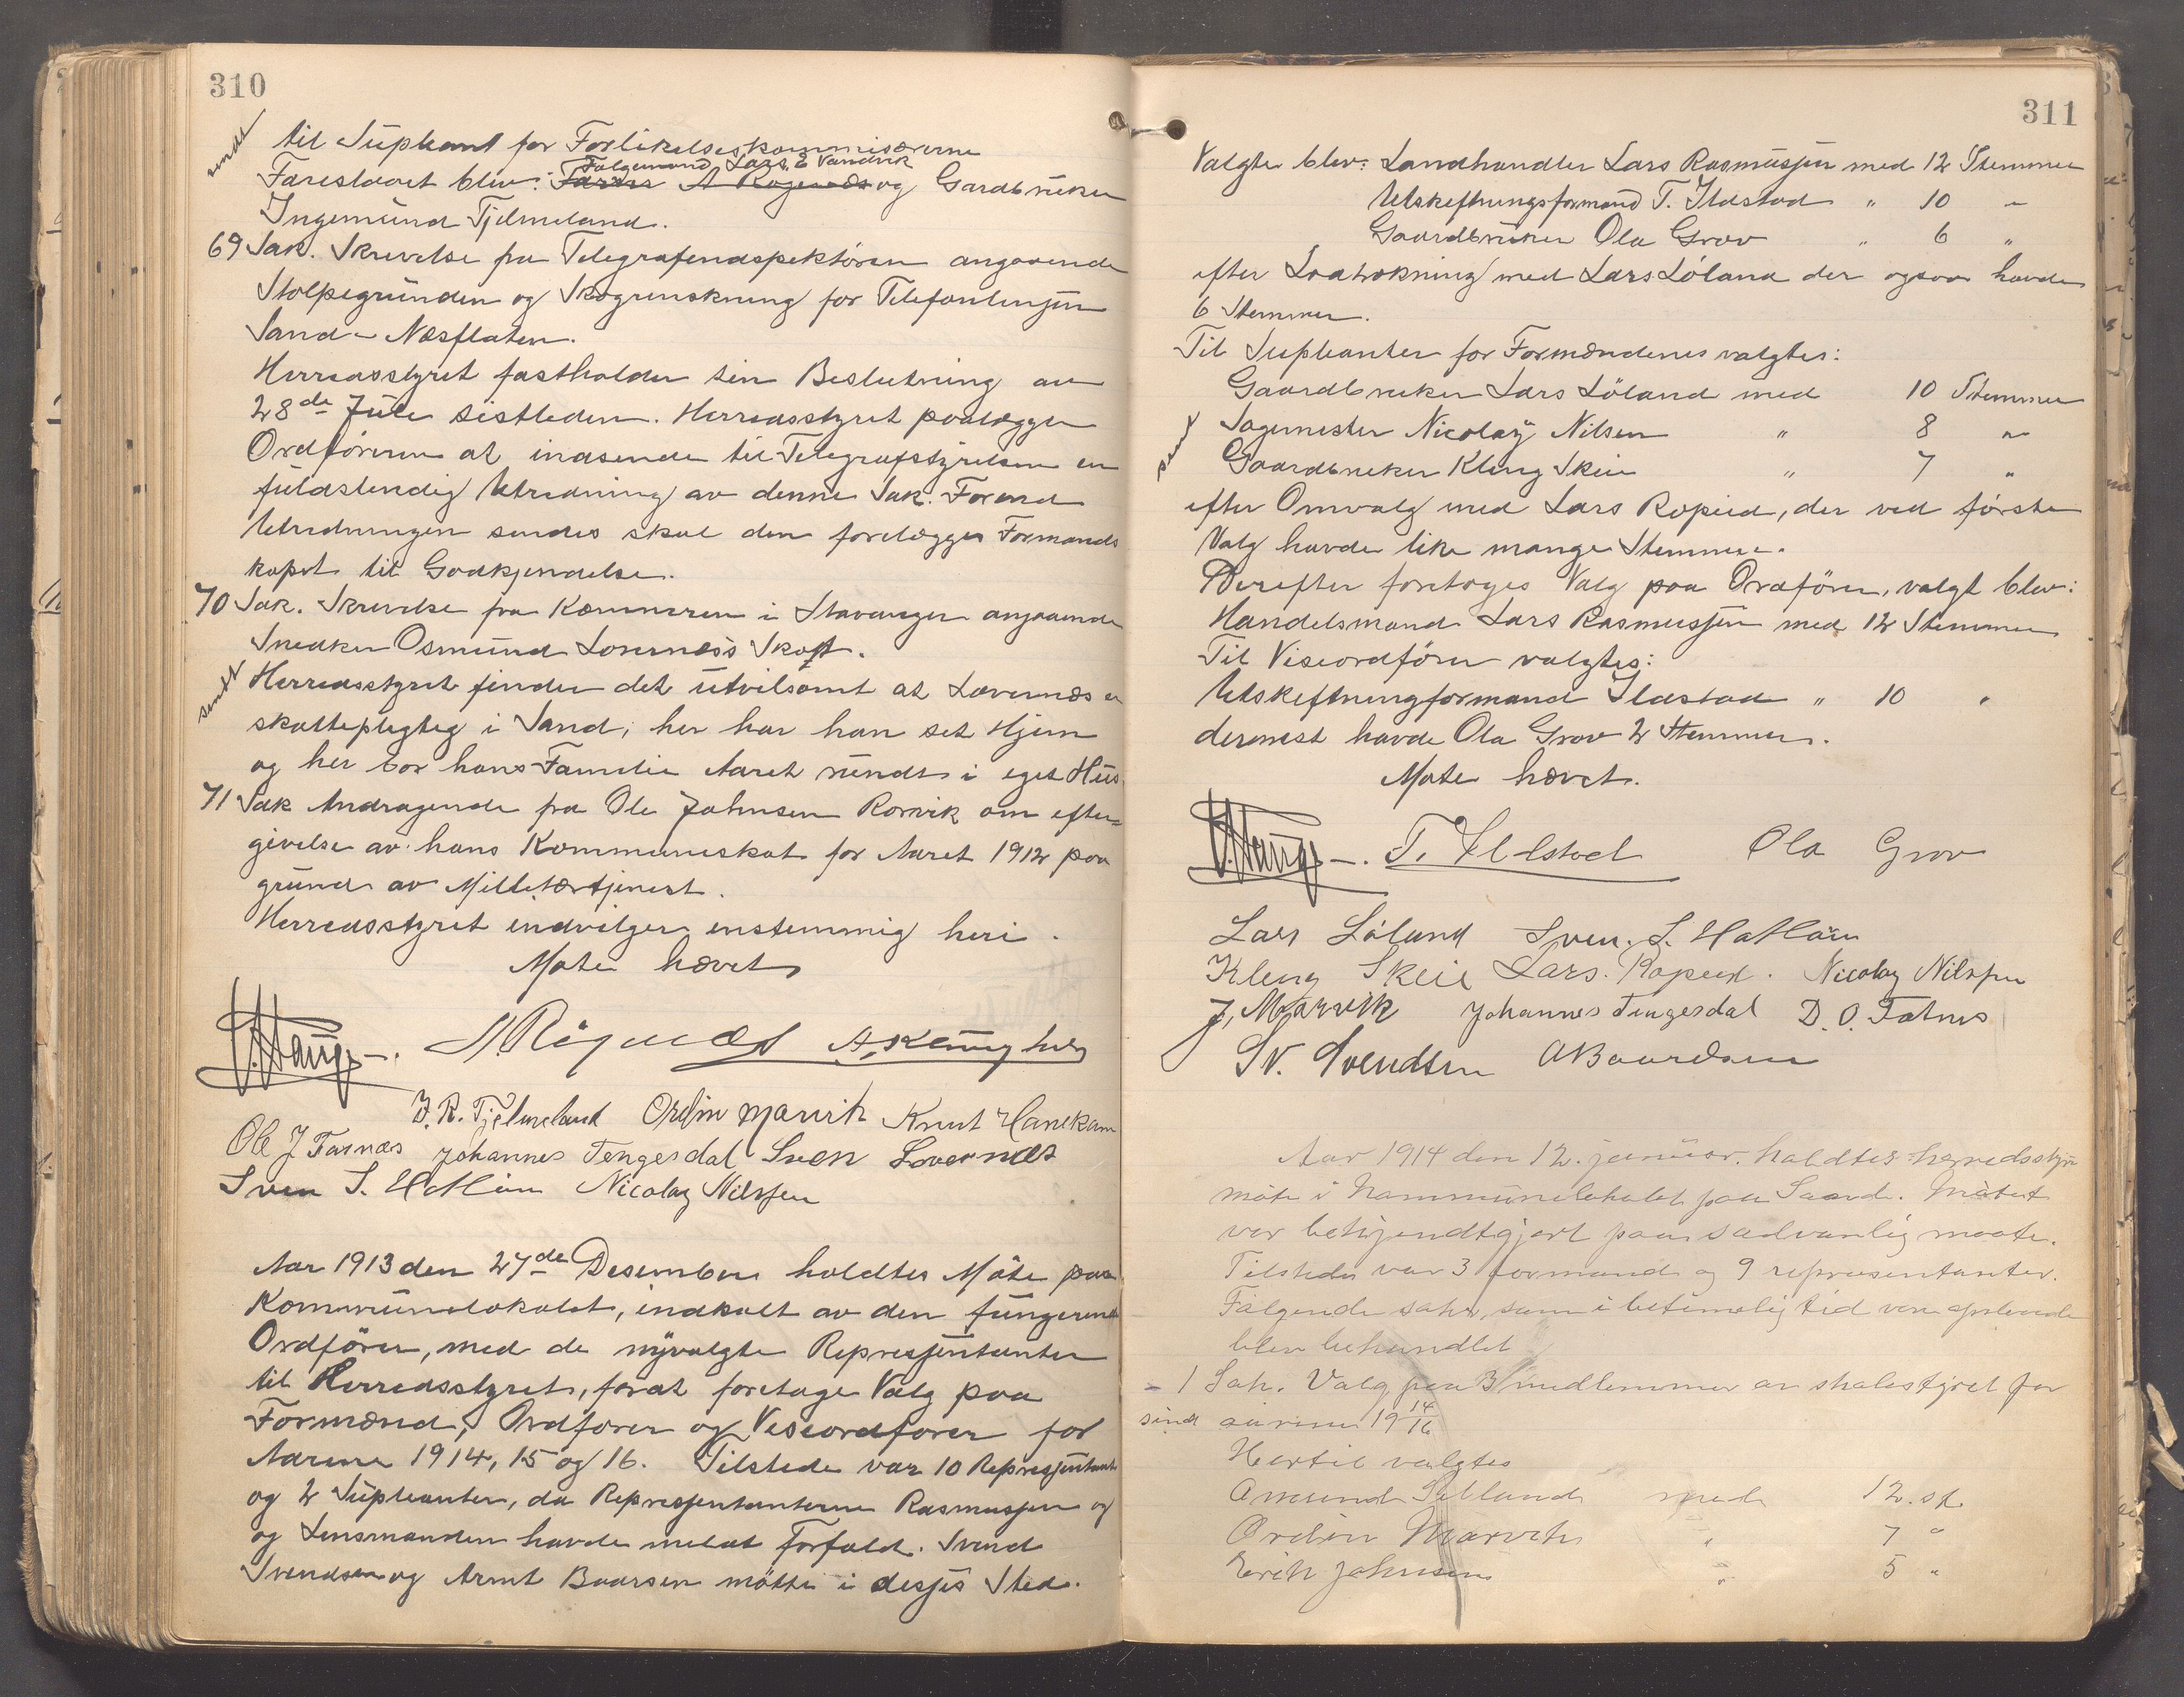 310
sendt
til Supleant for Forlikelseskommisærerne
Falgemand Lars E Vandvik
Foreslaaet blev: A Røgenæs og Gardbruker
Ingemund Tjelmeland.
69 Sak. Skrivelse fra Telegrafendspektøren angaaende
Stolpegrunden og Skogrenskning for Telefonlinjen
Sand - Næsflaten.
Herredsstyret fastholder sin Beslutning av
28de Juli sistleden. Herredsstyret paalægger
Ordføreren at indsende til Telegrafstyrelsen en
fuldstendig Utredning av denne Sak. Forend
Utredningen sendes skal den forelægges Formands
kapet til Godkjendelse.
70 Sak. Skrivelse fra Kæmneren i Stavanger angaaende
Snedker Osmund Lovernæs's Skat.
sendt
Herredsstyret finder det utvilsomt at Lovernæs er
skattepligtig i Sand; her har han set Hjem
og her bor hans Familie Aaret rundt i eget Hus
71 Sak Andragende fra Ole Johnsen Rorvik om efter=
givelse av hans Kommuneskat for Aaret 1912 paa
grund av Millitærtjenest.
Herredsstyret indvilger enstemmig heri.
Møte hævet
A Røgnæs A. Kenny
I. R. Tjelmeland Ordin Marvik Knut Hanekam
Ole J Farnæs Johannes Tengesdal Sven Lovernæs
Sven S. Hatlöin Nicolay Nilssen
Aar 1913 den 27de Desember holdtes Møte paa
Kommunelokalet, indkalt av den fungerende
Ordfører, med de nyvalgte Represjentanter
til Herredsstyret, forat foretage Valg paa
Formænd, Ordfører og Viseordfører for
Aarene 1914, 15 og 16. Tilstede var 10 Represjentant
og 2 Supleanter, da Represjentanterne Rasmusjen og
og Lensmanden havde meldt Forfald. Svend
Svendsen og Arnt Baarsen møtte i desjes Sted.
311
Valgte blev: Landhandler Lars Rasmusjen med 12 Stemmer
Utskeftningsformand T. Ilstad " 10 "
Gaardbruker Ola Grov " 6 "
efter Lodtrækning med Lars Löland der ogsaa havde
6 Stemmer.
Til Supleanter for Formændenes valgtes:
Gaardbruker Lars Löland med 10 Stemmer
Sagmester Nicolay Nilsen " 8 "
Gaardbruker Kleng Skeie " 7 "
efter Omvalg med Lars Ropeid, der ved første
Valg havde like mange Stemmer.
Derefter foretoges Valg paa Ordfører, valgt blev:
Handelsmand Lars Rasmusjen med 12 Stemmer
Til Viseordfører valgtes:
Utskeftningformand Ilstad " 10 "
dernest havde Ola Grov 2 Stemmer.
Møte hævet.
T. Ilstad Ola Grov
Lars Löland Sven. S. Hatlöin
Kleng Skeie Lars. Ropeid. Nicolay Nilssen
J. Marvik Johannes Tengesdal D. O. Fatnes
Sv. Svendsen A Baardsen
Aar 1914 den 12. januar. holdtes herredsstyre
møte i kommunelokalet paa Sand. Møtet
var bekjendtgjort paa sedvanlig maate.
Tilstede var 3 formænd og 9 representanter.
Følgende saker, som i betimelig tid var
blev behandlet
1 Sak. Valg paa 3 medlemmer av skolestyret for
send aarene 19 14/16
Hertil valgtes
Amund Selland med 12. st.
Ordin Marvik " 7 "
Erik Johnsen " 5 "